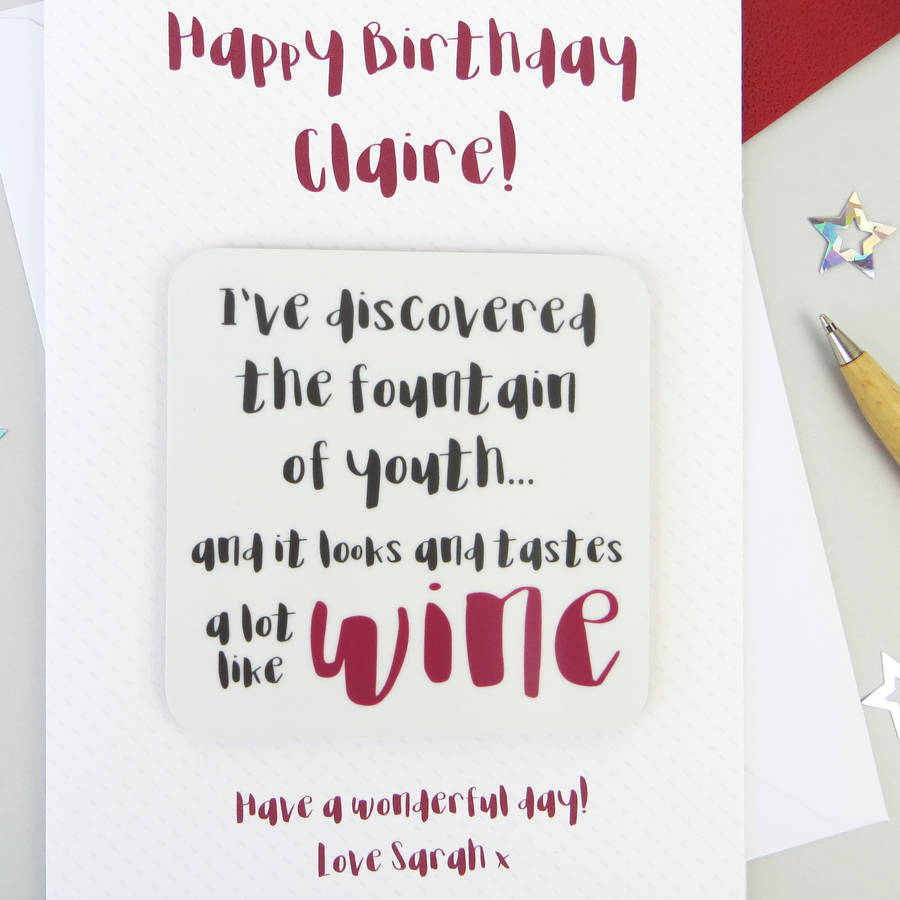 Happy Birthday
Claire!
I've discovered
the fountain
of youth...
and it looks and tastes
a lot
like wine
Have a wonderful day!
Love Sarah x